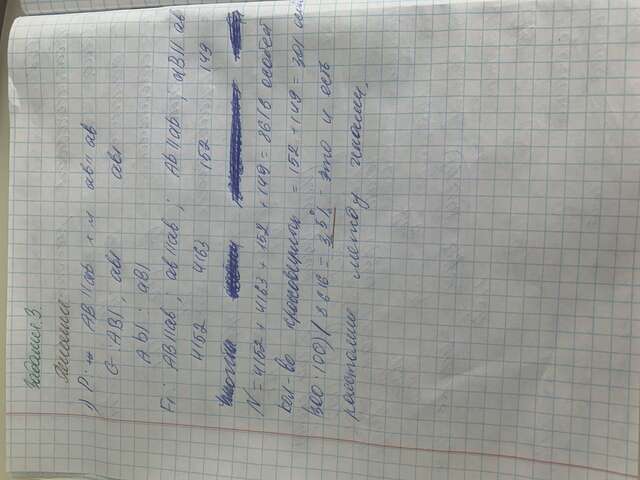 Задание 3.
1) P: ♀ AB||ab × ♂ ab||ab
G: AB|; ab| ab|
Ab|; aB|
F1: AB||ab; ab||ab; Ab||ab; aB||ab
4152 4163 152 149
N = 4152 + 4163 + 152 + 149 = 8616 особей
Кол-во = 152 + 149 = 301
300·100)/8616 = 3,5%; это и есть
расстояние между генами.